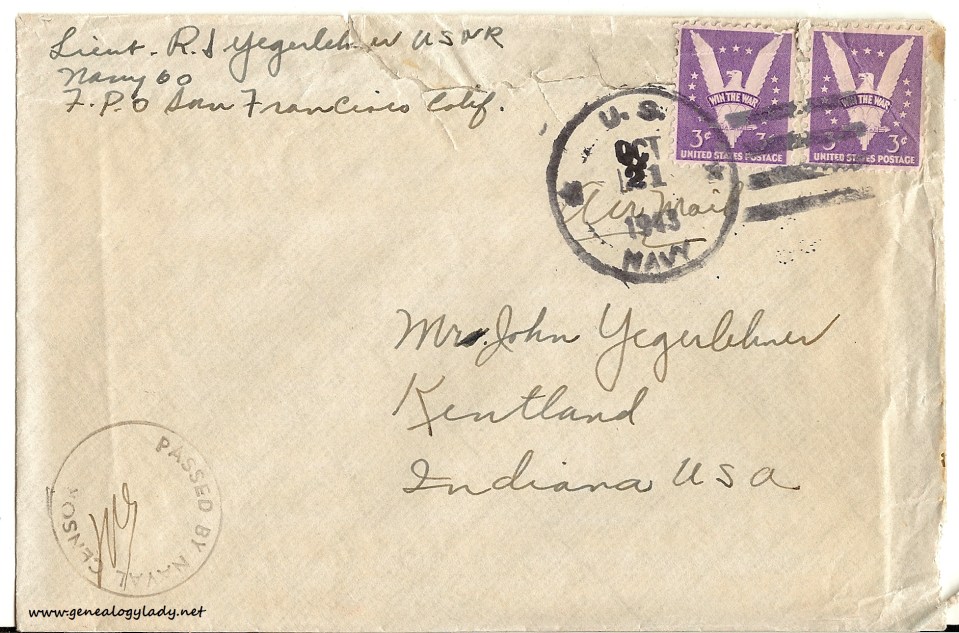 Lieut. R. S Yegerlehner USNR
Navy 60
F.P.O San Francisco Calif.
WIN THE WAR
3¢ 3¢
UNITED STATES POSTAGE
WIN THE WAR
3¢ 3¢
UNITED STATES POSTAGE
U. S.
OCT
21
1943
NAVY
Air Mail
Mr. John Yegerlehner
Kentland
Indiana USA
PASSED BY NAVAL CENSOR
www.genealogylady.net